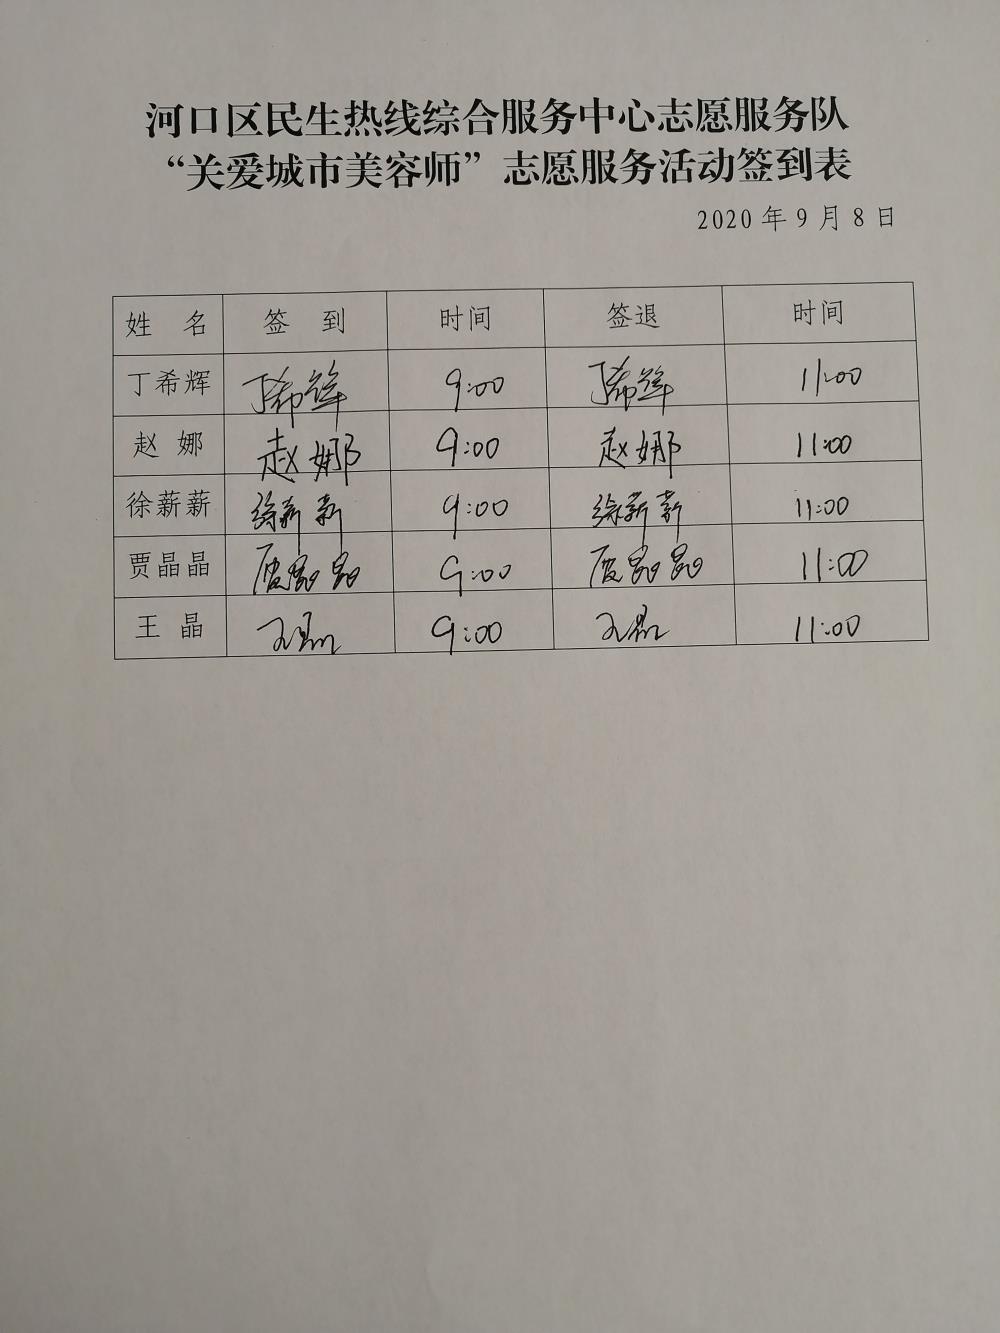 河口区民生热线综合服务中心志愿服务队
“关爱城市美容师”志愿服务活动签到表
2020年9月8日
姓 名 签 到 时间 签退 时间
丁希辉 丁希辉 9:00 丁希辉 11:00
赵 娜 赵娜 9:00 赵娜 11:00
徐薪薪 徐薪薪 9:00 徐薪薪 11:00
贾晶晶 贾晶晶 9:00 贾晶晶 11:00
王 晶 王晶 9:00 王晶 11:00